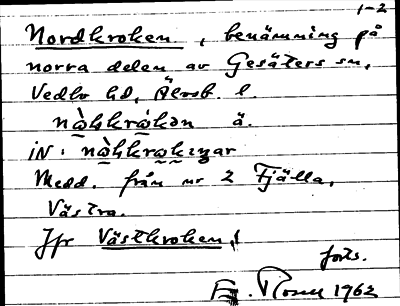 1-2
Nordkroken, benämning på
norra delen av Gesäters sn,
Vedbo hd, Älvsb. l.
nò̱kkrò̱kən ä.
iN: nò̱kkrokıŋar
Medd. från nr 2 Fjälla,
Västra.
Jfr Västkroken!
forts.
1962